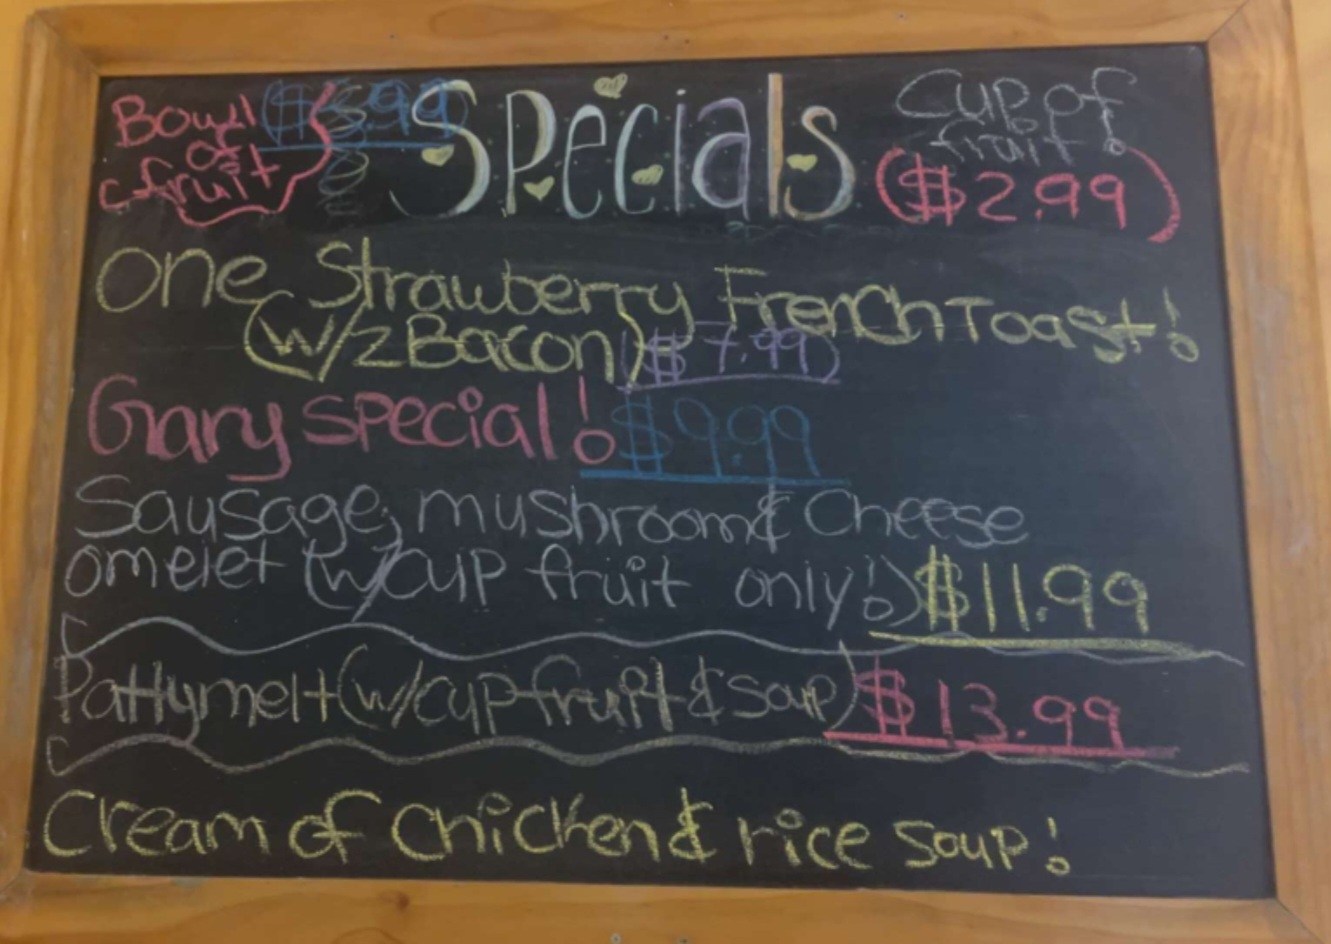 Specials
Bowl ($3.99)
of
fruit
Cup of
fruit!
($2.99)
One Strawberry French Toast!
(w/2 Bacon) ($7.99)
Gary special! $9.99
Sausage, mushroom & Cheese
omelet (w/cup fruit only!) $11.99
Pattymelt (w/cup fruit & soup) $13.99
Cream of Chicken & rice soup!